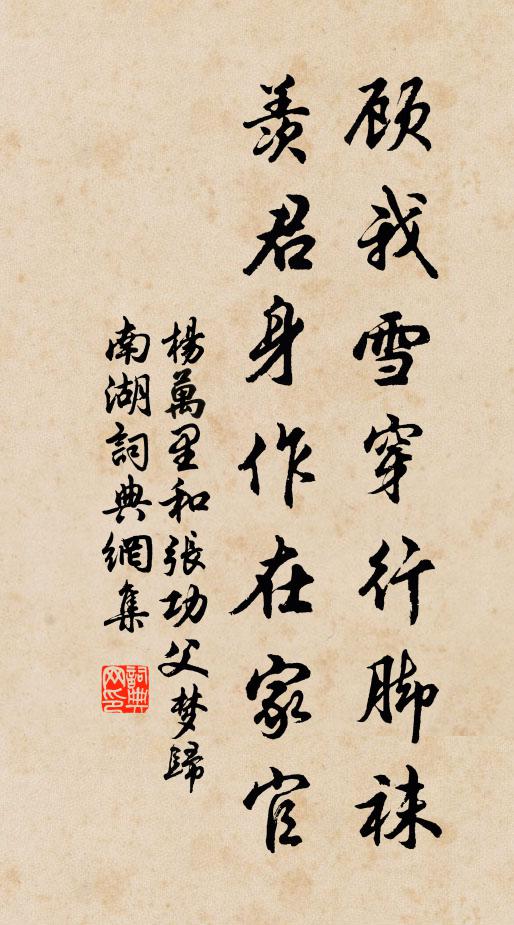 顾我雪穿行脚袜
羡君身作在家官
楊萬里和張功父梦歸
南湖詞典網集
詞典网印